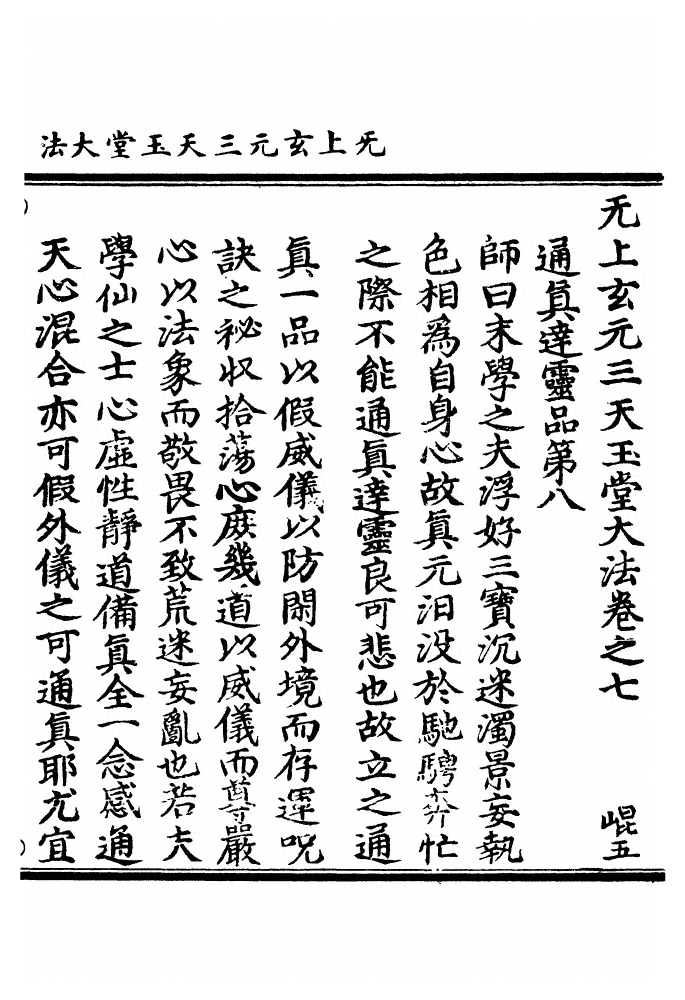 无上玄元三天玉堂大法
无上玄元三天玉堂大法卷之七　崐五
通眞達靈品第八
師曰末學之夫浮好三寶沉迷濁景妄執
色相爲自身心故眞元汨没於馳騁奔忙
之際不能通眞達靈良可悲也故立之通
眞一品以假威儀以防閑外境而存運呪
訣之祕收拾蕩心庻幾道以威儀而尊嚴
心以法象而敬畏不致荒迷妄亂也若夫
學仙之士心虛性靜道備眞全一念感通
天心混合亦可假外儀之可通眞耶尤宜